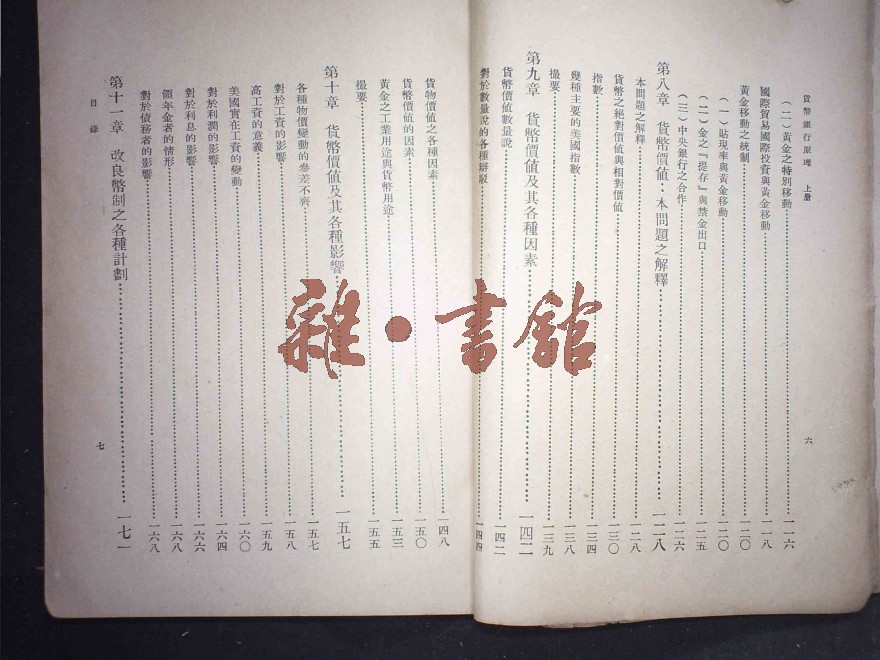 貨幣銀行原理 上册
六
(二)黃金之特別移動 一一六
國際貿易國際投資與黃金移動 一一八
黃金移動之統制 一二〇
(一)貼現率與黃金移動 一二〇
(二)金之『提存』與禁金出口 一二五
(三)中央銀行之合作 一二六
第八章 貨幣價値·本問題之解釋 一二八
本問題之解釋 一二八
貨幣之絕對價値與相對價値 一三〇
指數 一三四
幾種主要的美國指數 一三八
撮要 一三九
第九章 貨幣價値及其各種因素 一四二
貨幣價値數量說 一四二
對於數量說的各種辯駁 一四四
貨物價値之各種因素 一四八
貨幣價値的因素 一五〇
黃金之工業用途與貨幣用途 一五三
撮要 一五五
第十章 貨幣價値及其各種影響 一五七
各種物價變動的參差不齊 一五七
對於工資的影響 一五八
高工資的意義 一五九
美國實在工資的變動 一六〇
對於利潤的影響 一六四
對於利息的影響 一六六
領年金者的情形 一六八
對於債務者的影響 一六八
第十一章 改良幣制之各種計劃 一七一
目錄
七
雜·書館